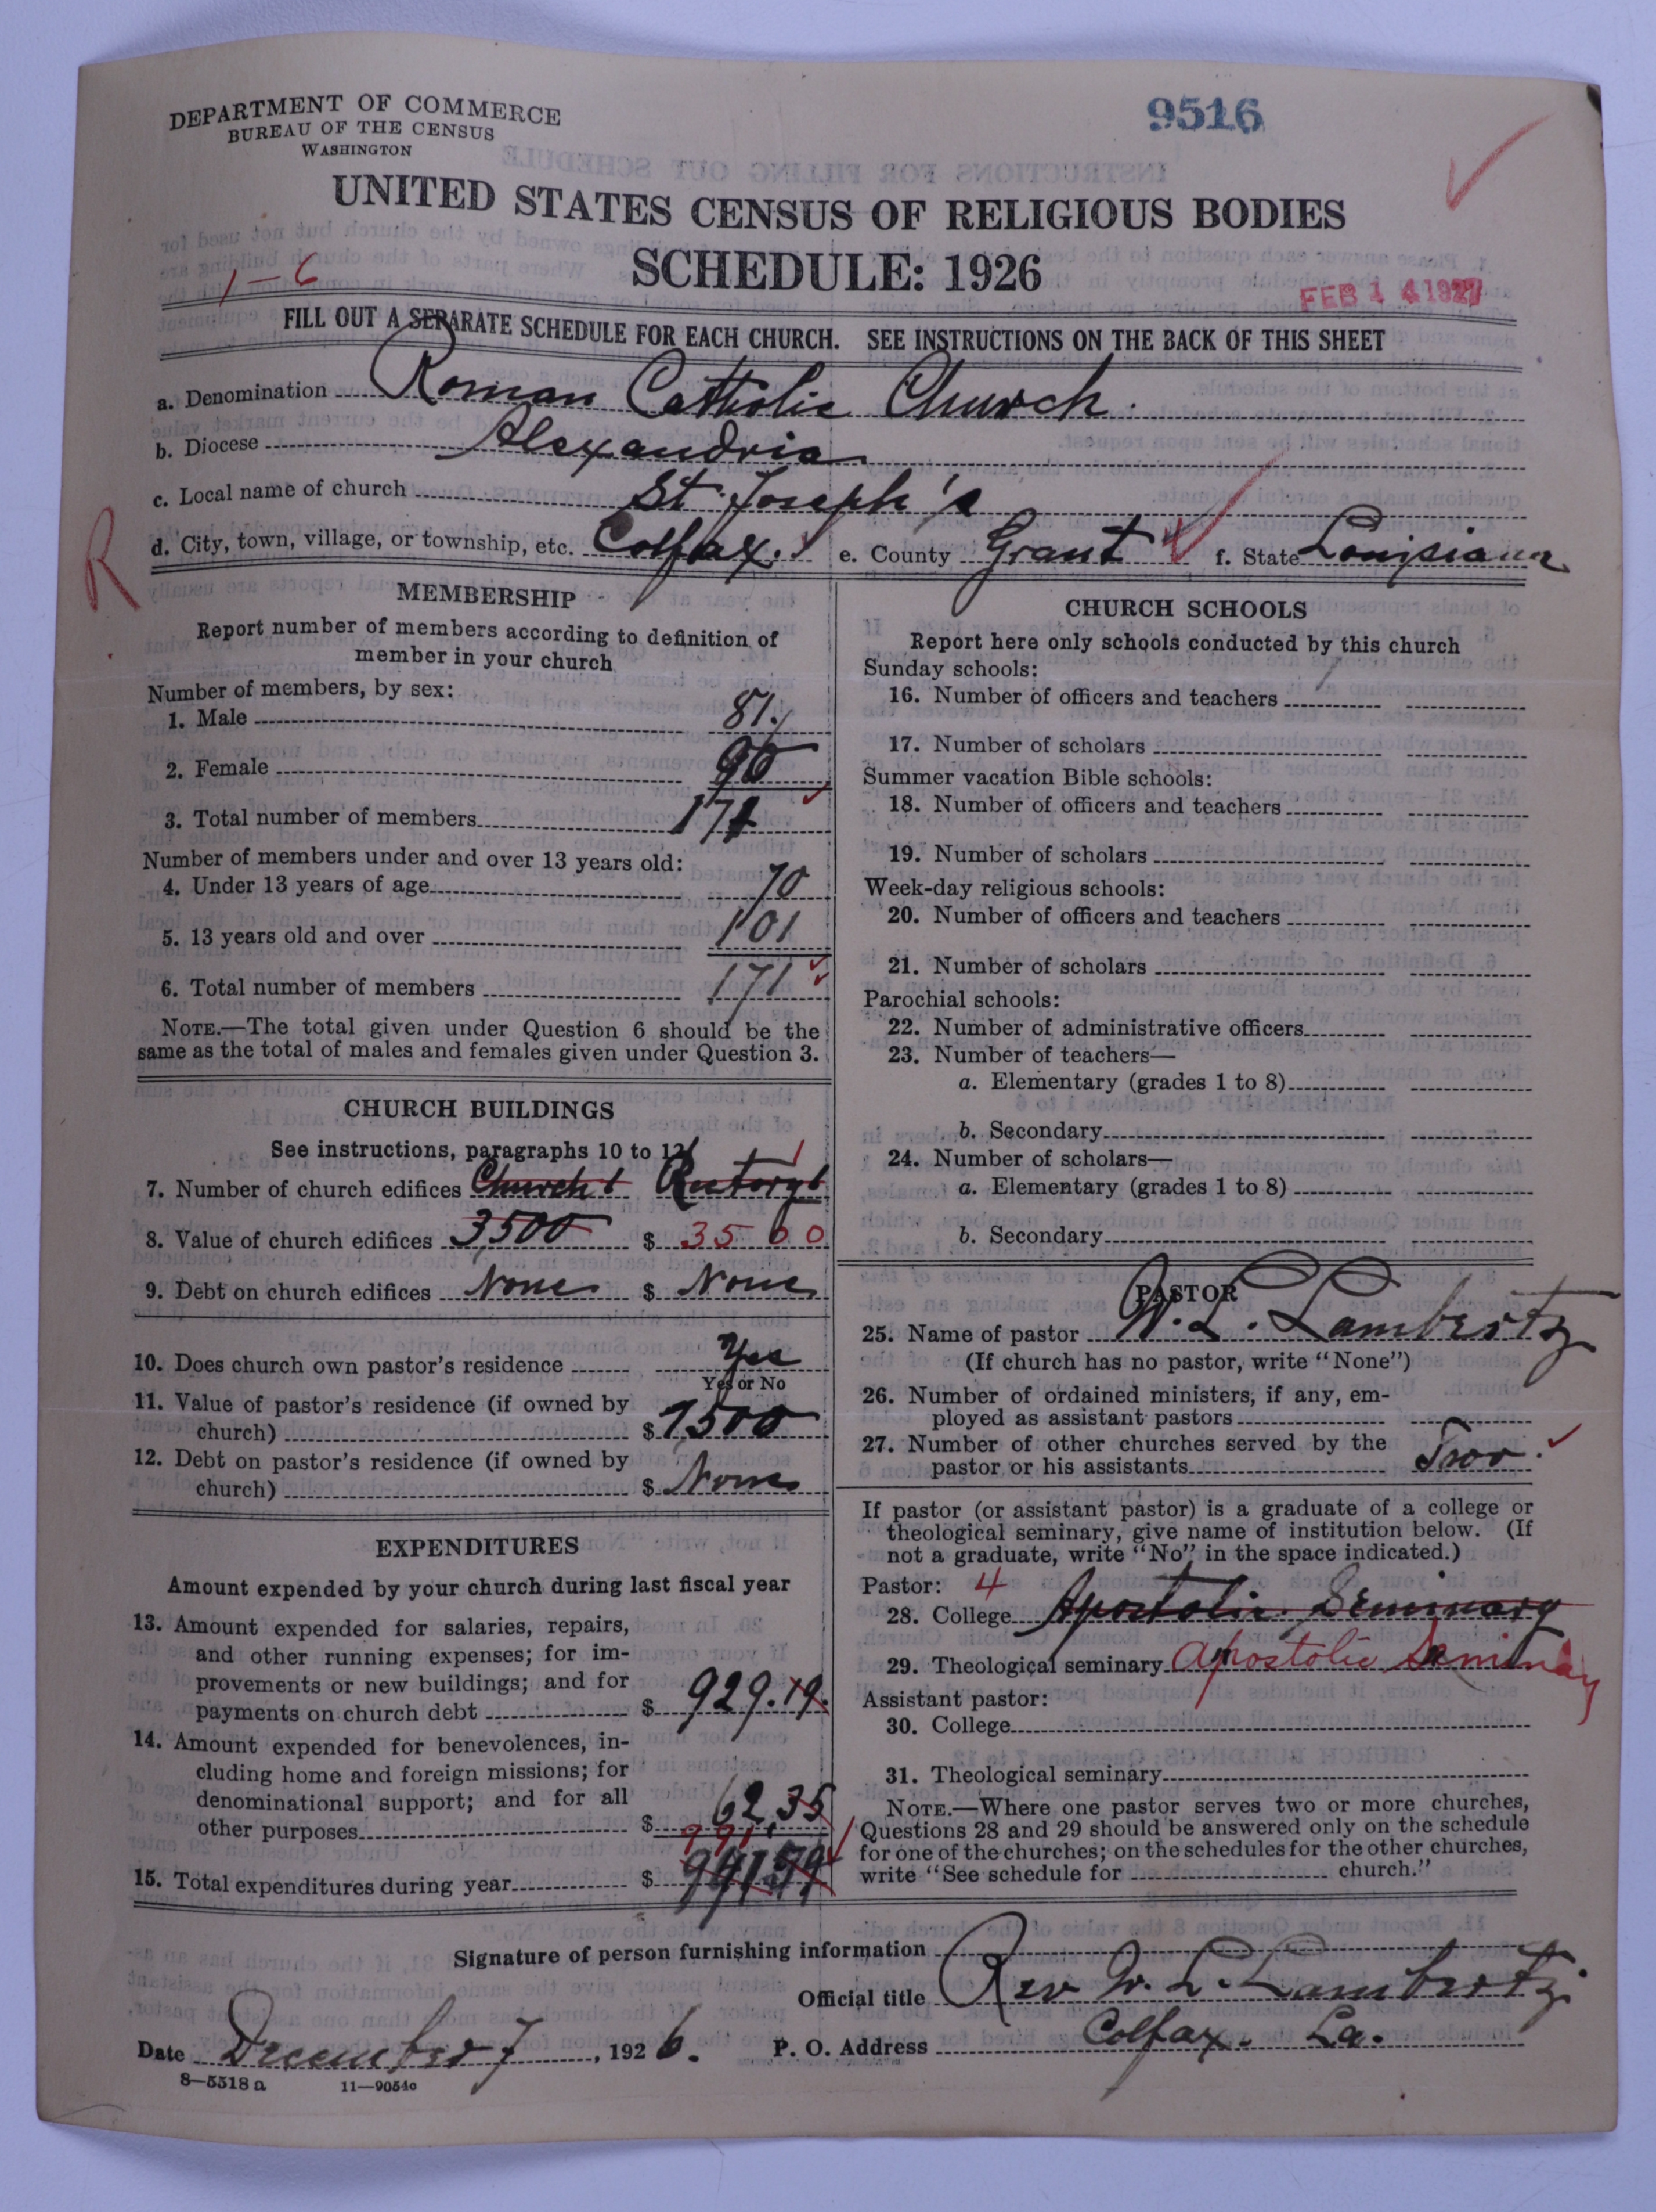 DEPARTMENT OF COMMERCE
BUREAU OF THE CENSUS
WASHINGTON
9516
UNITED STATES CENSUS OF RELIGIOUS BODIES
SCHEDULE: 1926
1-6
FEB 14 1927
FILL OUT A SEPARATE SCHEDULE FOR EACH CHURCH. SEE INSTRUCTIONS ON THE BACK OF THIS SHEET
a. Denomination Roman Catholic Church.
b. Diocese Alexandria
c. Local name of church St. Joseph's
R
d. City, town, village, or township, etc. Colfax. e. County Grant f. State Louisiana
MEMBERSHIP
Report number of members according to definition of
member in your church
Number of members, by sex:
1. Male 81.
2. Female 90
3. Total number of members 171
Number of members under and over 13 years old:
4. Under 13 years of age 70
5. 13 years old and over 101
6. Total number of members 171
NOTE.—The total given under Question 6 should be the
same as the total of males and females given under Question 3.
CHURCH BUILDINGS
See instructions, paragraphs 10 to 12
7. Number of church edifices Church 1 Rectory 1 1
8. Value of church edifices 3500 $ 3500
9. Debt on church edifices None $ None
10. Does church own pastor's residence Yes
Yes or No
11. Value of pastor's residence (if owned by
church) $ 1500
12. Debt on pastor's residence (if owned by
church) $ None
EXPENDITURES
Amount expended by your church during last fiscal year
13. Amount expended for salaries, repairs,
and other running expenses; for im-
provements or new buildings; and for
payments on church debt $ 929.19.
14. Amount expended for benevolences, in-
cluding home and foreign missions; for
denominational support; and for all
other purposes $ 62.35
991
15. Total expenditures during year $
CHURCH SCHOOLS
Report here only schools conducted by this church
Sunday schools:
16. Number of officers and teachers
17. Number of scholars
Summer vacation Bible schools:
18. Number of officers and teachers
19. Number of scholars
Week-day religious schools:
20. Number of officers and teachers
21. Number of scholars
Parochial schools:
22. Number of administrative officers
23. Number of teachers—
a. Elementary (grades 1 to 8)
b. Secondary
24. Number of scholars—
a. Elementary (grades 1 to 8)
b. Secondary
PASTOR
25. Name of pastor W. L. Lambertz
(If church has no pastor, write "None")
26. Number of ordained ministers, if any, em-
ployed as assistant pastors
27. Number of other churches served by the
pastor or his assistants Two.
If pastor (or assistant pastor) is a graduate of a college or
theological seminary, give name of institution below. (If
not a graduate, write "No" in the space indicated.)
Pastor: 4
28. College Apostolic Seminary
29. Theological seminary Apostolic Seminary
Assistant pastor:
30. College
31. Theological seminary
NOTE.—Where one pastor serves two or more churches,
Questions 28 and 29 should be answered only on the schedule
for one of the churches; on the schedules for the other churches,
write "See schedule for church."
Signature of person furnishing information
Official title Rev W. L. Lambertz
Date December 7, 1926. P. O. Address Colfax. La.
8—5518a 11—9054c